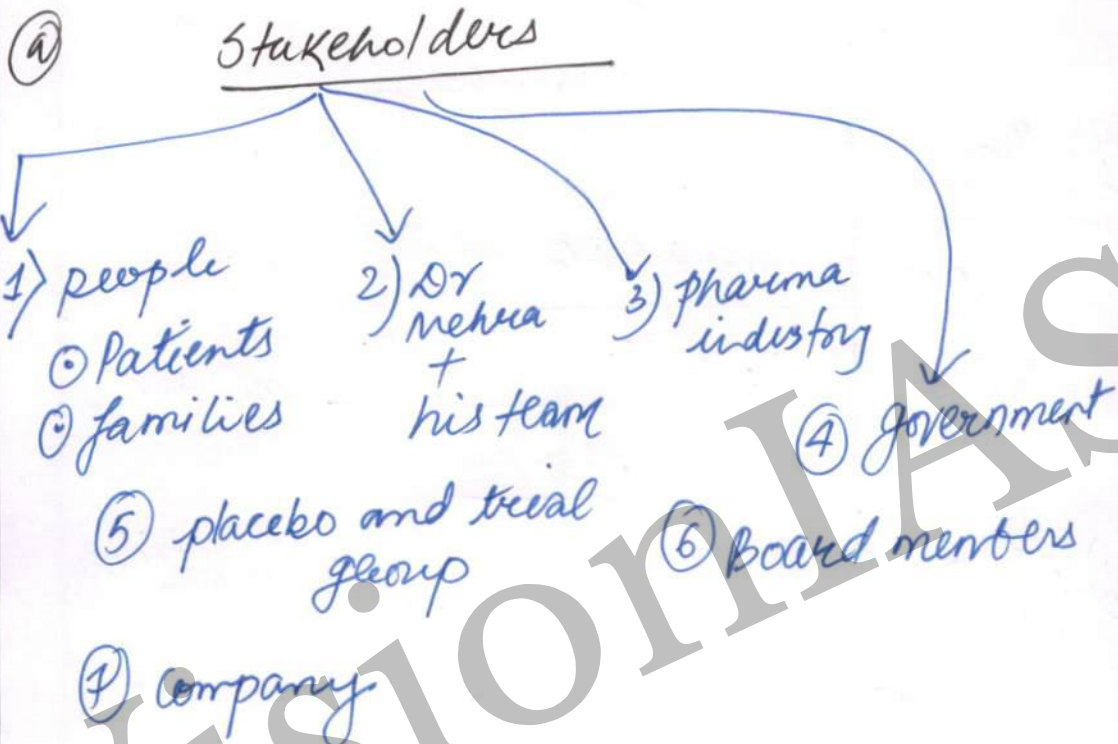 ⓐ Stakeholders
1) people
⊙ Patients
⊙ families
2) Dr
Mehra
+
his team
3) pharma
industry
④ government
⑤ placebo and trial
group
⑥ Board members
⑦ company
VisionIAS